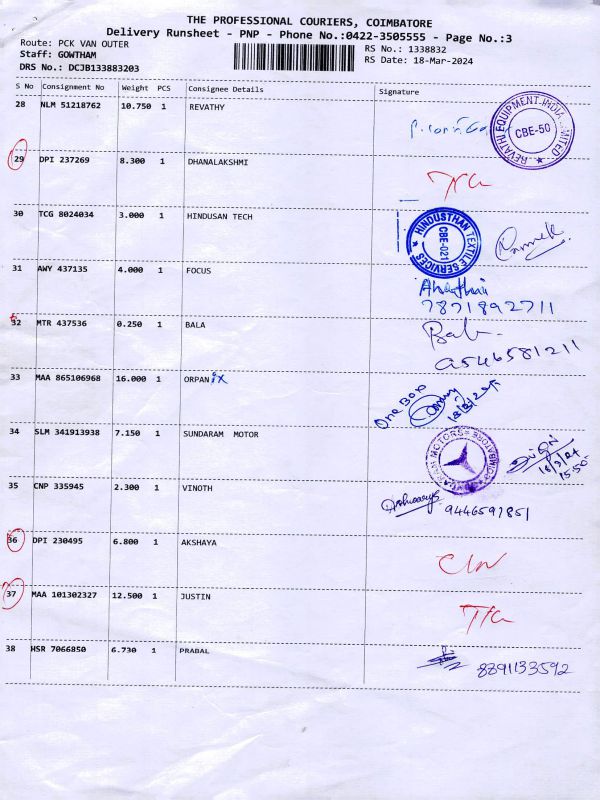 THE PROFESSIONAL COURIERS, COIMBATORE
Delivery Runsheet - PNP - Phone No.:0422-3505555 - Page No.:3
Route: PCK VAN OUTER
RS No.: 1338832
Staff: GOWTHAM
RS Date: 18-Mar-2024
DRS No.: DCJB133883203
S No Consignment No Weight PCS Consignee Details Signature
28 NLM 51218762 10.750 1 REVATHY
REVATHI EQUIPMENT INDIA LIMITED
CBE-50
29 DPI 237269 8.300 1 DHANALAKSHMI
30 TCG 8024034 3.000 1 HINDUSAN TECH
HINDUSTHAN TEXTILE SERVICES
CBE-021
31 AWY 437135 4.000 1 FOCUS
7871892711
32 MTR 437536 0.250 1 BALA
Bala
9546581211
33 MAA 865106968 16.000 1 ORPANix
One Box
34 SLM 341913938 7.150 1 SUNDARAM MOTOR
MOTORS COIMBATORE
15:50
35 CNP 335945 2.300 1 VINOTH
9446597851
36 DPI 230495 6.800 1 AKSHAYA
37 MAA 101302327 12.500 1 JUSTIN
38 HSR 7066850 6.730 1 PRABAL
8891133592